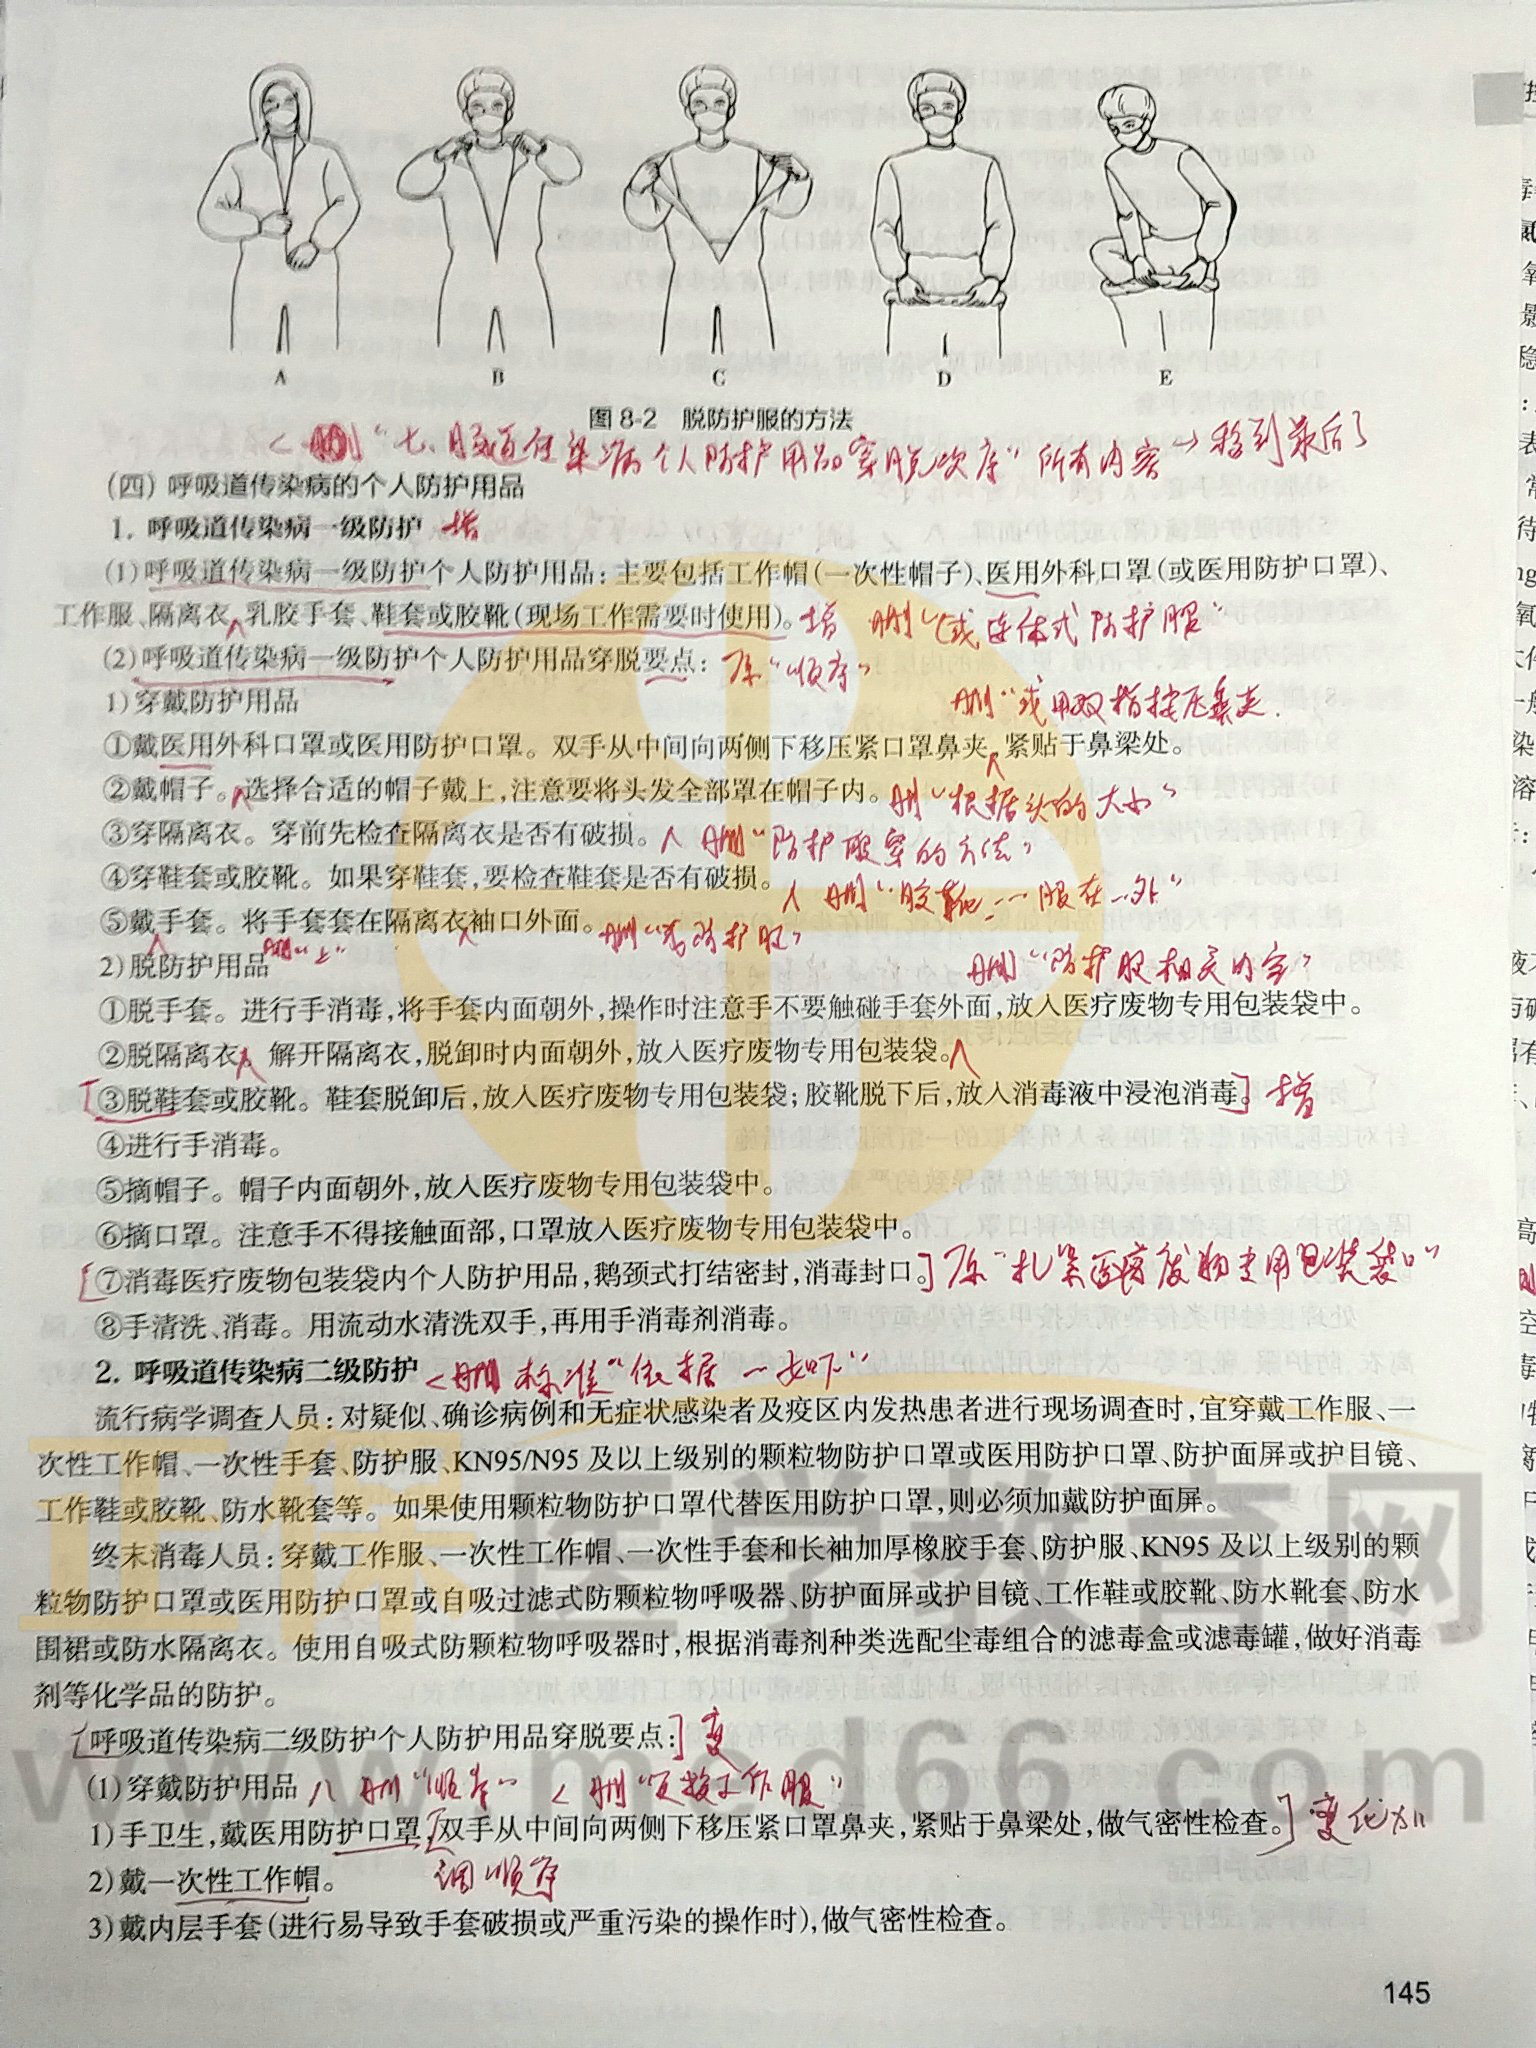 A B C D E
图 8-2 脱防护服的方法
删“七、肠道传染病个人防护用品穿脱次序”所有内容→移到最后了
(四) 呼吸道传染病的个人防护用品
1. 呼吸道传染病一级防护 增
(1)呼吸道传染病一级防护个人防护用品：主要包括工作帽(一次性帽子)、医用外科口罩(或医用防护口罩)、
工作服、隔离衣、乳胶手套、鞋套或胶靴(现场工作需要时使用)。增 删“(或连体式防护服”
(2)呼吸道传染病一级防护个人防护用品穿脱要点：原“顺序”
1)穿戴防护用品 删“或用双指按压鼻夹.
①戴医用外科口罩或医用防护口罩。双手从中间向两侧下移压紧口罩鼻夹,紧贴于鼻梁处。
②戴帽子。选择合适的帽子戴上,注意要将头发全部罩在帽子内。删“根据头的大小”
③穿隔离衣。穿前先检查隔离衣是否有破损。删“防护服穿的方法”
④穿鞋套或胶靴。如果穿鞋套,要检查鞋套是否有破损。删“胶靴……服在…外”
⑤戴手套。将手套套在隔离衣袖口外面。删“或防护服”
2)脱防护用品 删“上” 删“防护服相关内容”
①脱手套。进行手消毒,将手套内面朝外,操作时注意手不要触碰手套外面,放入医疗废物专用包装袋中。
②脱隔离衣。解开隔离衣,脱卸时内面朝外,放入医疗废物专用包装袋。
③脱鞋套或胶靴。鞋套脱卸后,放入医疗废物专用包装袋；胶靴脱下后,放入消毒液中浸泡消毒。增
④进行手消毒。
⑤摘帽子。帽子内面朝外,放入医疗废物专用包装袋中。
⑥摘口罩。注意手不得接触面部,口罩放入医疗废物专用包装袋中。
⑦消毒医疗废物包装袋内个人防护用品,鹅颈式打结密封,消毒封口。原“扎紧医疗废物专用包装袋口”
⑧手清洗、消毒。用流动水清洗双手,再用手消毒剂消毒。
2. 呼吸道传染病二级防护 删标准“依据…如下”
流行病学调查人员：对疑似、确诊病例和无症状感染者及疫区内发热患者进行现场调查时,宜穿戴工作服、一
次性工作帽、一次性手套、防护服、KN95/N95 及以上级别的颗粒物防护口罩或医用防护口罩、防护面屏或护目镜、
工作鞋或胶靴、防水靴套等。如果使用颗粒物防护口罩代替医用防护口罩,则必须加戴防护面屏。
医学教育网
终末消毒人员：穿戴工作服、一次性工作帽、一次性手套和长袖加厚橡胶手套、防护服、KN95 及以上级别的颗
粒物防护口罩或医用防护口罩或自吸过滤式防颗粒物呼吸器、防护面屏或护目镜、工作鞋或胶靴、防水靴套、防水
围裙或防水隔离衣。使用自吸式防颗粒物呼吸器时,根据消毒剂种类选配尘毒组合的滤毒盒或滤毒罐,做好消毒
剂等化学品的防护。
呼吸道传染病二级防护个人防护用品穿脱要点：变
www.med66.com
(1)穿戴防护用品 删“顺序” 删“更换工作服”
1)手卫生,戴医用防护口罩,双手从中间向两侧下移压紧口罩鼻夹,紧贴于鼻梁处,做气密性检查。变化加
2)戴一次性工作帽。调顺序
3)戴内层手套(进行易导致手套破损或严重污染的操作时),做气密性检查。
145